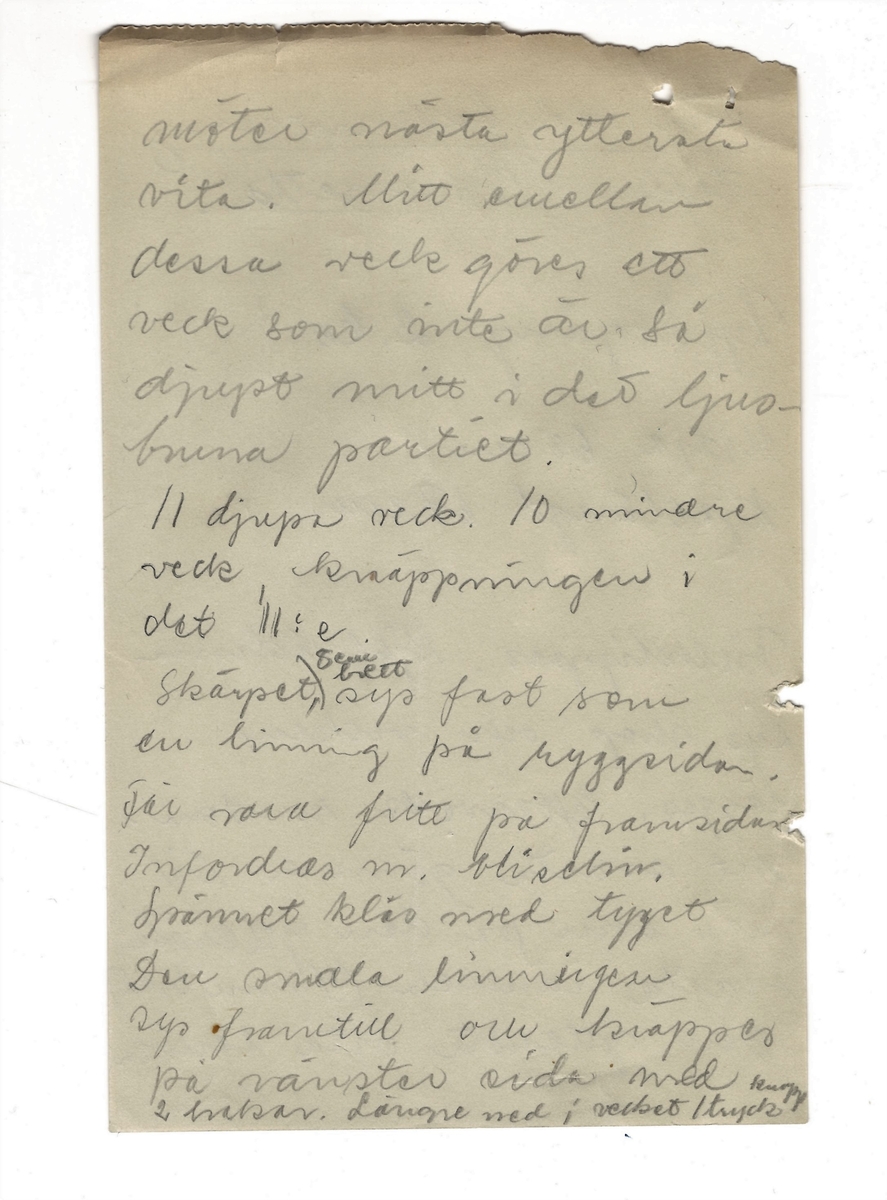 möter nästa yttersta
vita. Mitt emellan
dessa veck göres ett
veck som inte är så
djupt mitt i det ljus-
bruna partiet.
11 djupa veck. 10 mindre
veck, knäppningen i
det 11:e.
8 cm
brett
Skärpet, sys fast som
en linning på ryggsidan.
Får vara fritt på framsidan
Infordras m.
Spännet kläs med tyget
Den smala linningen
sys framtill och knäppes
på vänster sida med
knapp
2 hakar. Längre ned i vecket 1 tryck